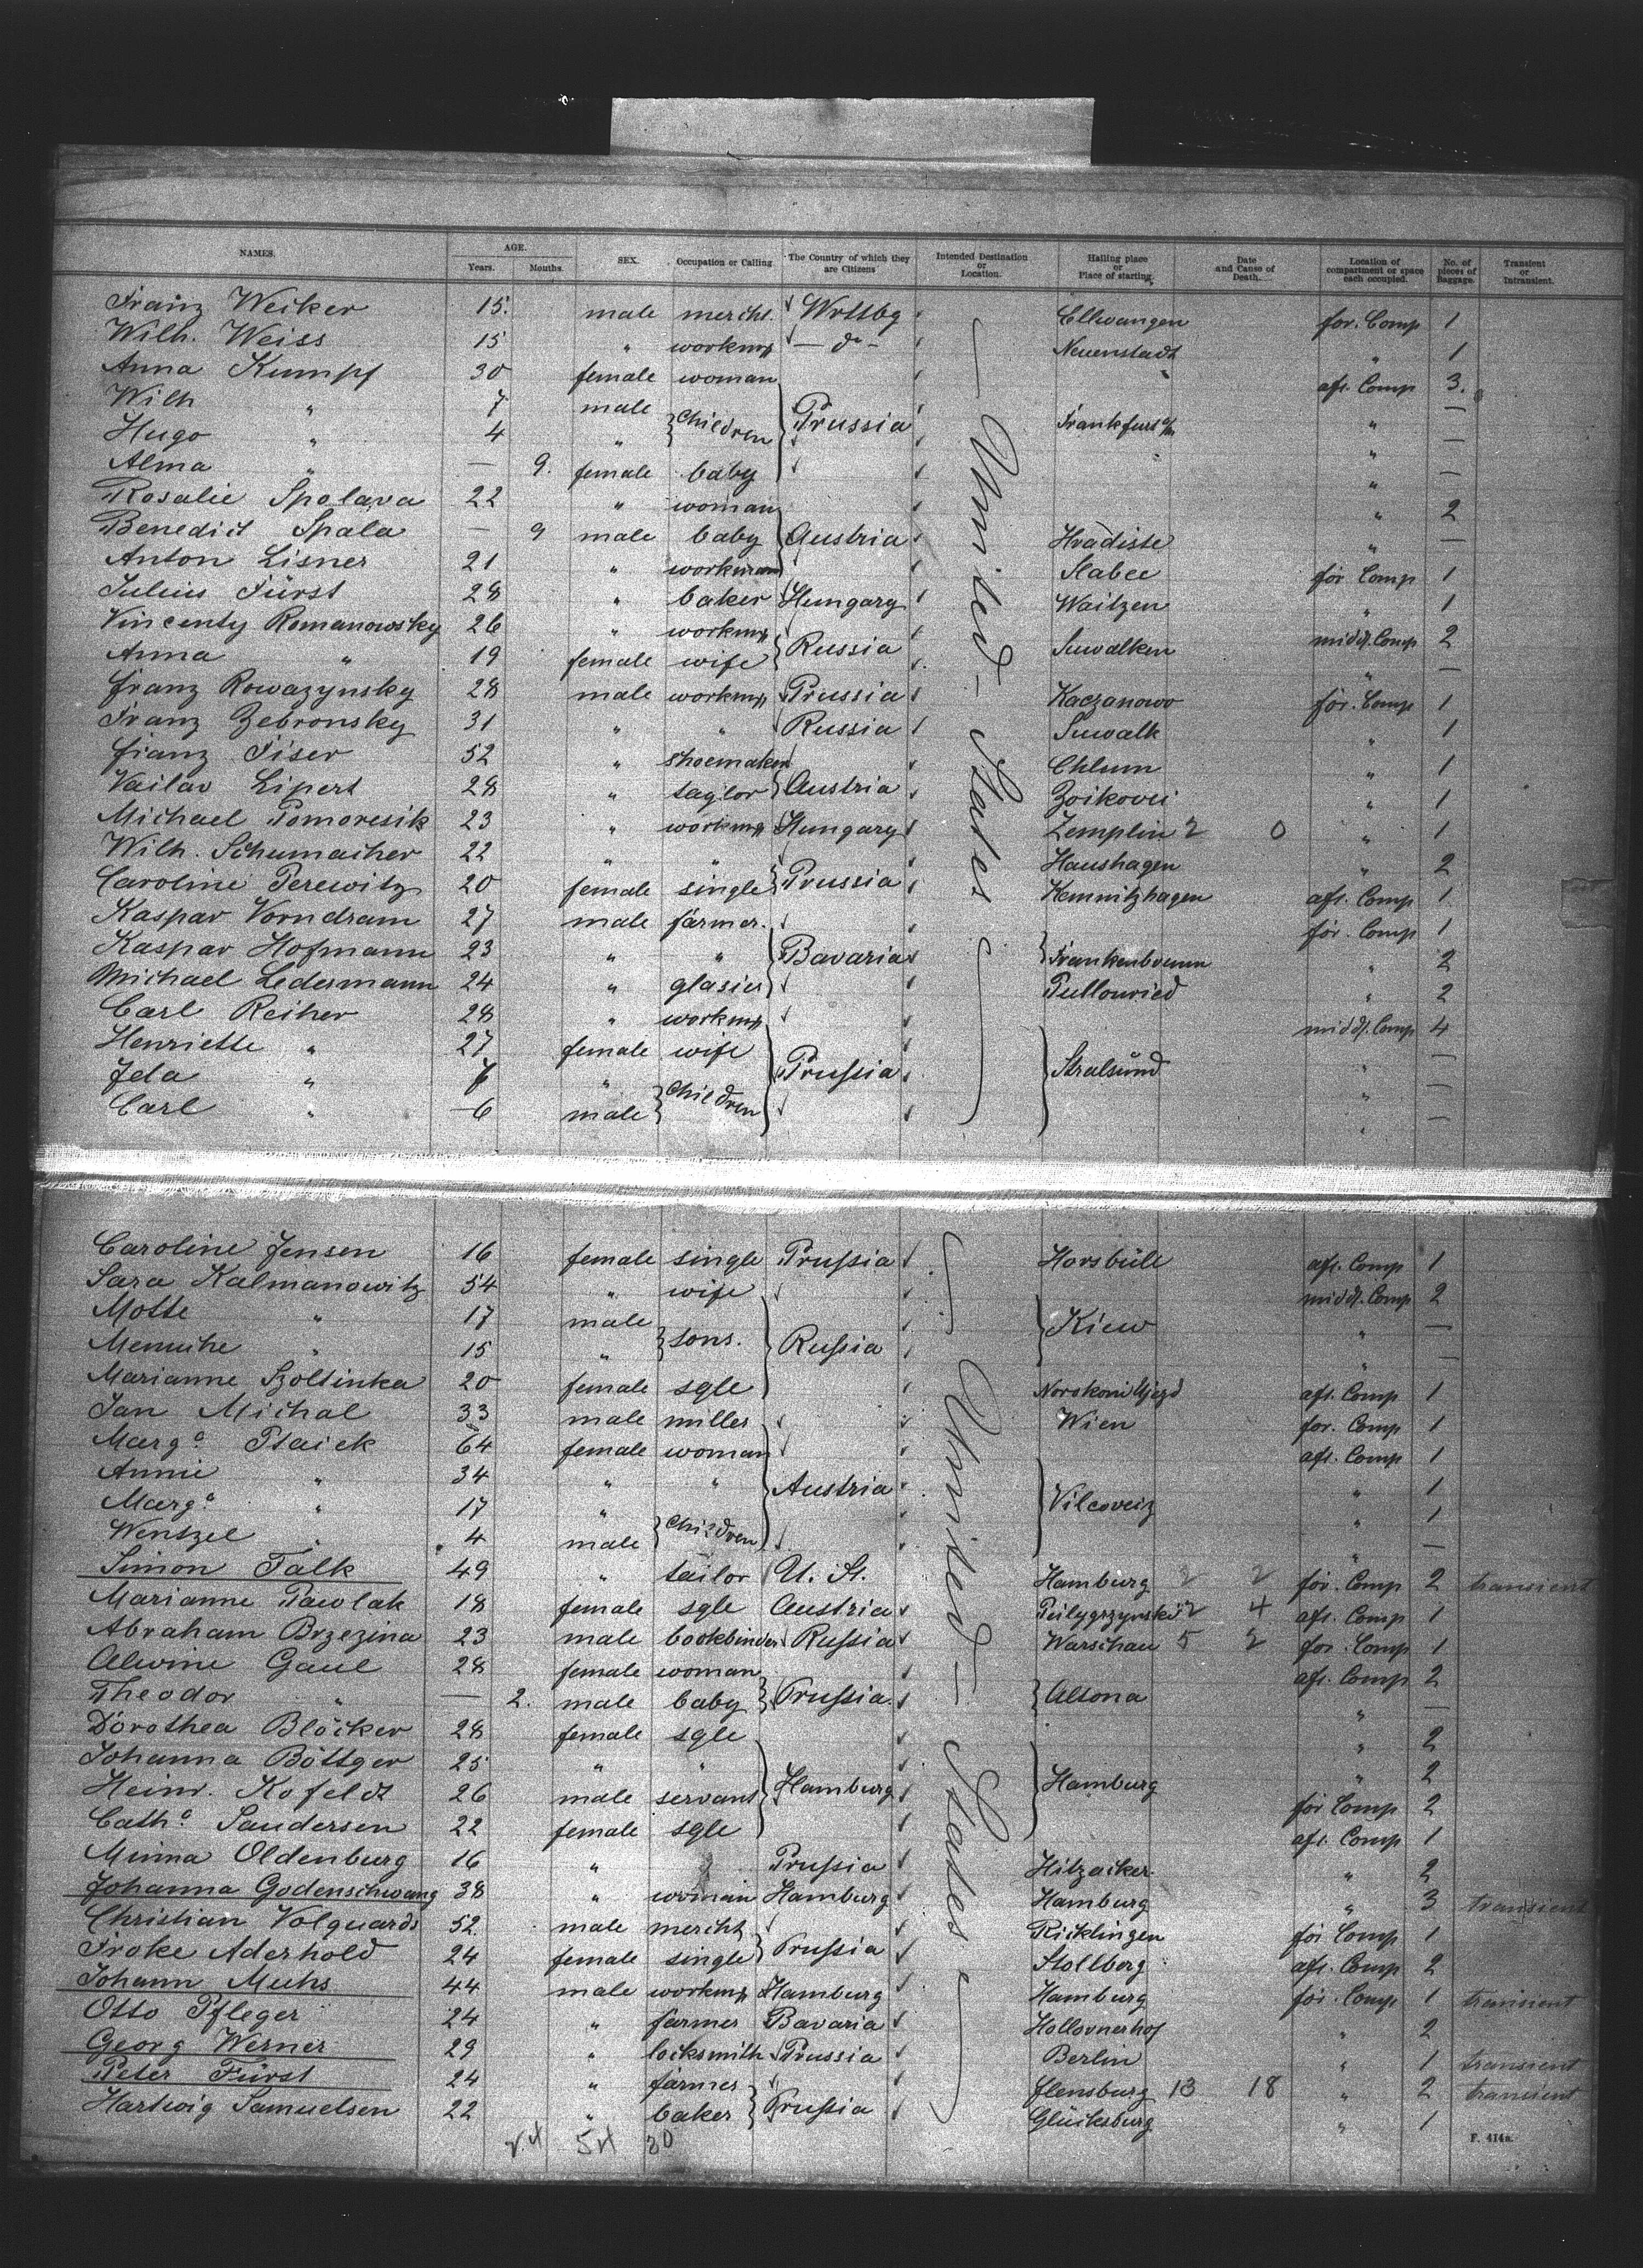 NAMES. AGE. Years. Months. SEX. Occupation or Calling The Country of which they are Citizens Intended Destination or Location. Hailing place or Place of starting. Date and Cause of Death. Location of compartment or space each occupied. No. of pieces of Baggage. Transient or Intransient.
Franz Weiker 15. male mercht. Wrttbg Ellwangen for. Comp 1
Wilh. Weiss 15 " workmn — do - Neuenstadt " 1
Anna Kumpf 30 female woman aft. Comp 3.
Wilh " 7 male Children Prussia Frankfurt a/M " —
Hugo " 4 " " —
Alma " — 9. female baby " —
Rosalie Spolava 22 " woman " 2
Benedict Spala — 9 male baby Austria Hradiste " —
Anton Lisner 21 " workman Slabec for Comp 1
Julius Fürst 28 " baker Hungary Waitzen " 1
Vincenty Romanowsky 26 " workmn Russia Suwalken midd. Comp 2
Anna " 19 female wife " —
Franz Rowazynsky 28 male workmn Prussia Kaczanowo for. Comp 1
Franz Zebronsky 31 " " Russia Suwalk " 1
Franz Fiser 52 " shoemaker Chlum " 1
Vailav Lipert 28 " taylor Austria Zoikovei " 1
Michael Pomoresik 23 " workmn Hungary Zemplin 2 0 " 1
Wilh. Schumacher 22 " " Haushagen " 2
Caroline Perewitz 20 female single Prussia Hemnitzhagen aft. Comp 1
Kaspar Vorndram 27 male farmer. for. Comp 1
Kaspar Hofmann 23 " " Bavaria Frankenbrunn " 2
Michael Ledermann 24 " glasier Pullouried " 2
Carl Reiher 28 " workmn midd. Comp 4
Henriette " 27 female wife —
Jda " 7 " Children Prussia Stralsund " —
Carl " —6 male " —
— United — States —
Caroline Jensen 16 female single Prussia Horsbüll aft. Comp 1
Sara Kalmanowitz 54 " wife midd. Comp 2
Motte " 17 male sons. Russia Kiew " —
Menuche " 15 " " —
Marianne Szoltinka 20 female sgle aft. Comp 1
Jan Michal 33 male miller Wien for. Comp 1
Marga. Ptaick 64 female woman aft. Comp 1
Annie " 34 " " Austria Vilcoveiz " 1
Marga. " 17 " Children " 1
Wentzel " 4 male " —
Simon Falk 49 " tailor U. St. Hamburg 2 2 for. Comp 2 transient
Marianne Pawlak 18 female sgle Austria 2 4 aft. Comp 1
Abraham Brzezina 23 male bookbinder Russia Warschau 5 2 for. Comp 1
Alwine Gaul 28 female woman aft. Comp 2
Theodor " — 2. male baby Prussia. Altona " —
Dorothea Blöcker 28 female sgle " 2
Johanna Böttger 25 " " " 2
Heinr. Kofeldt 26 male servant Hamburg Hamburg for Comp 2
Catha. Saudersen 22 female sgle aft. Comp 1
Minna Oldenburg 16 " " Prussia Hitzacker. " 2
Johanna Godenschwang 38 " woman Hamburg Hamburg " 3 transient
Christian Volquards 52 male mercht. Ricklingen for Comp 1
Froke Aderhold 24 female single Prussia Stollberg aft. Comp 2
Johann Muhs 44 male workmn Hamburg Hamburg for. Comp 1 transient
Otto Pfleger 24 " farmer Bavaria Hollovnerhof " 2
Georg Werner 29 " locksmith Prussia Berlin " 1 transient
Peter Fürst 24 " farmer Flensburg 13 18 " 2 transient
Hartwig Samuelsen 22 " baker Prussia Glücksburg " 1
— United — States —
54 20
F. 414a.